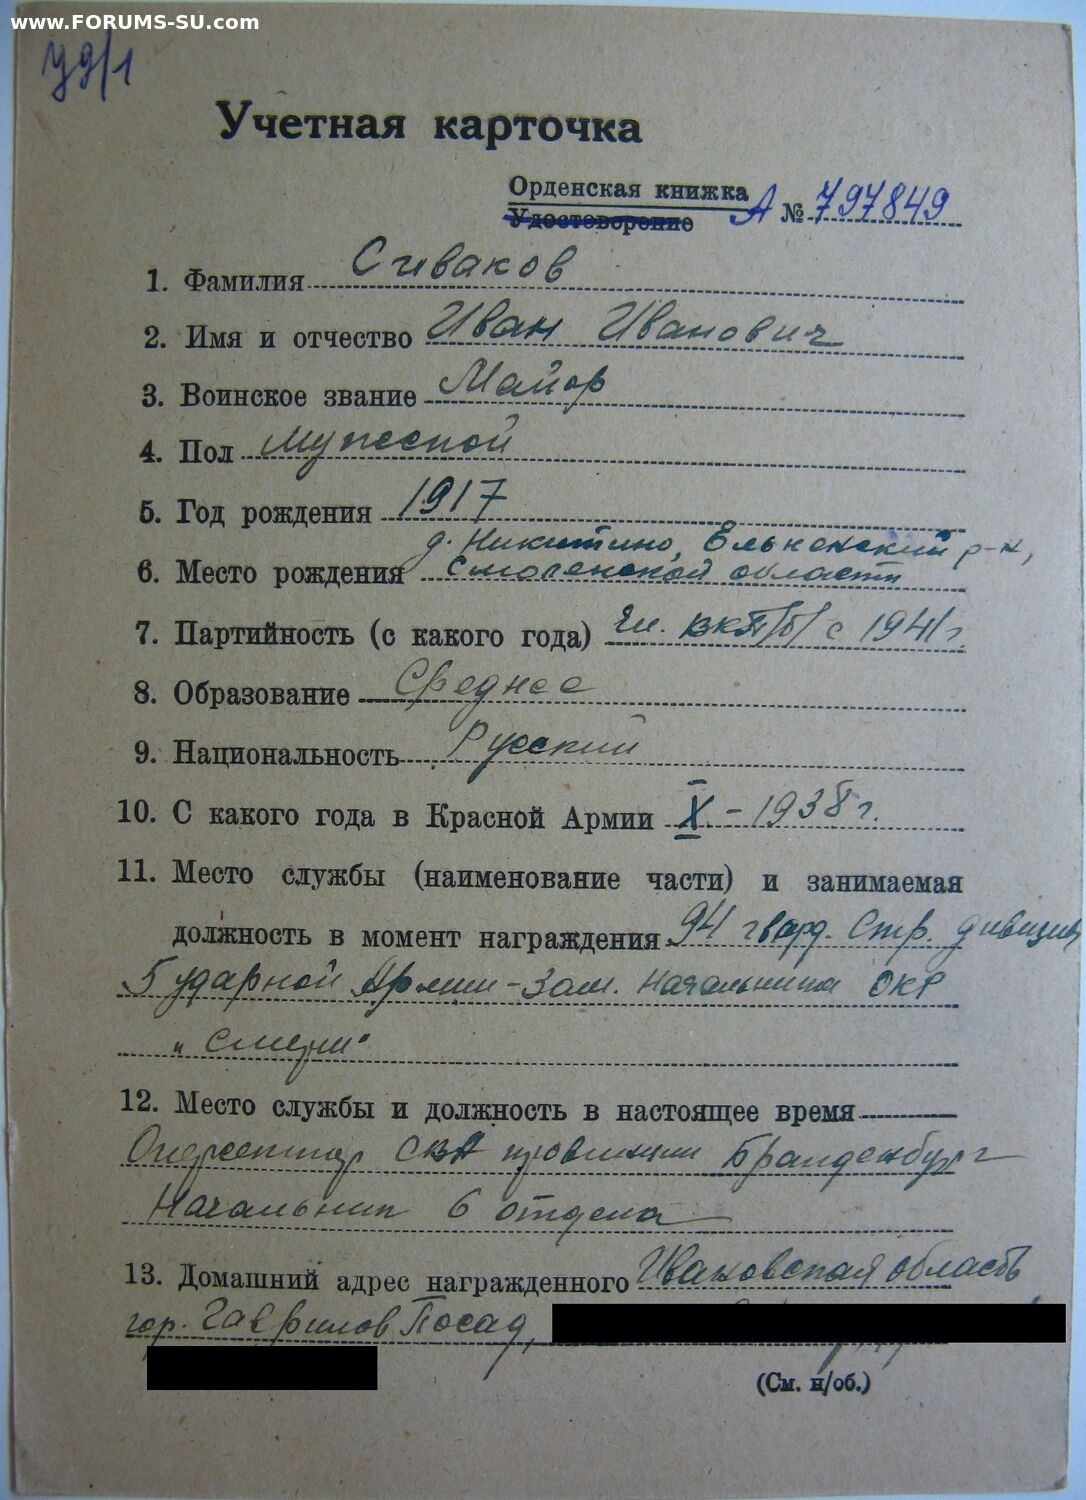 www.FORUMS-SU.com
Учетная карточка
Орденская книжка
Удостоверение А № 797849
1. Фамилия Сиваков
2. Имя и отчество Иван Иванович
3. Воинское звание Майор
4. Пол мужской
5. Год рождения 1917
д. Никитино, Ельненский р-н,
6. Место рождения Смоленской области
7. Партийность (с какого года) чл. ВКП/б/ с 1941 г.
8. Образование Среднее
9. Национальность Русский
10. С какого года в Красной Армии X - 1938 г.
11. Место службы (наименование части) и занимаемая
должность в момент награждения 94 гвард. Стр. дивизия
5 ударной Армии - Зам. начальника ОКР
"Смерш"
12. Место службы и должность в настоящее время
Оперсектор СВА провинции Бранденбург
Начальник 6 отдела
13. Домашний адрес награжденного Ивановская область
гор. Гаврилов Посад,
(См. н/об.)